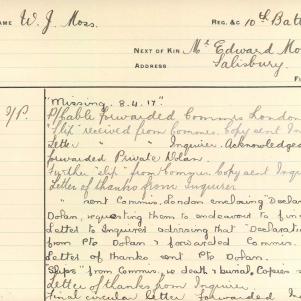 NAME W. J. Moss. REG. &C 10th Batt
NEXT OF KIN Mr Edward Mo
ADDRESS Salisbury.
"Missing. 8.4.17"
P/Cable forwarded Commrs London
"Slip" received from Commrs. Copy sent In
Letter " " Inquirer. Acknowledged
forwarded Private Dolan.
Further "slip" from Commrs. Copy sent Inqu
Letter of thanks from Inquirer
" sent Commrs. London enclosing Declar
Dolan, requesting them to endeavour to fin
Letter to Inquirer advising that "Declaratio
from Pte Dolan & forwarded Commrs.
Letter of thanks sent Pte Dolan.
Slips" from Commrs. re death & burial, Copies
Letter of thanks from Inquirer
Final circular Letter forwarded In